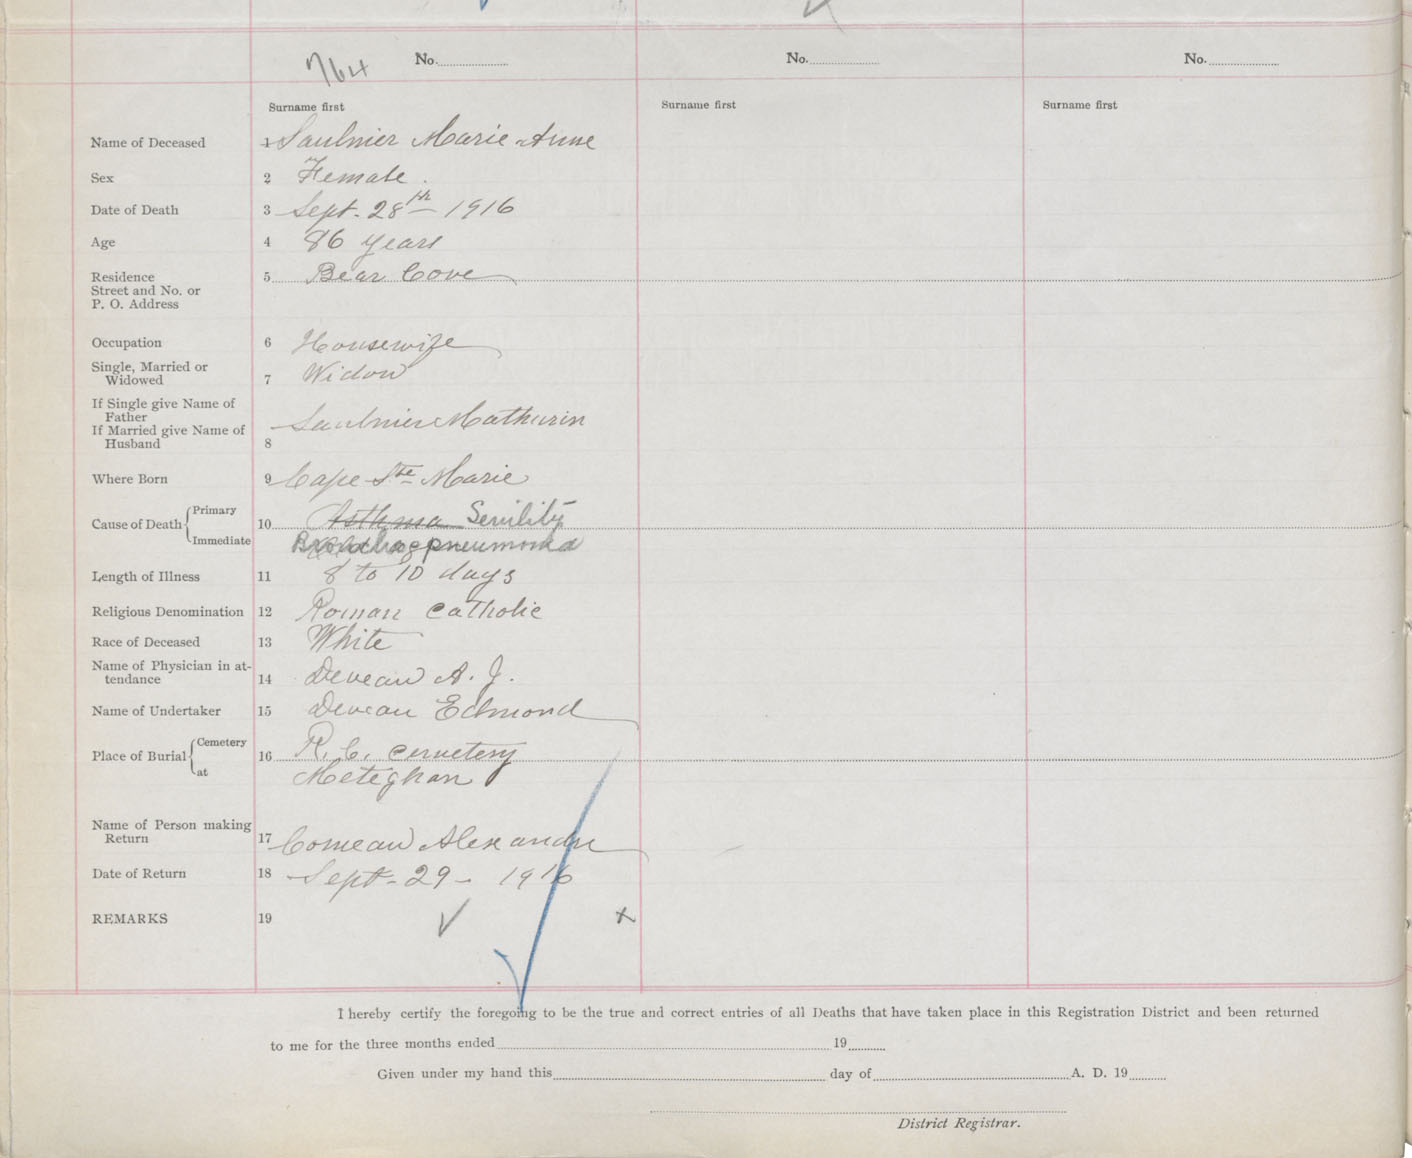 764 No. No. No.
Surname first Surname first Surname first
Name of Deceased 1 Saulnier Marie Anne
Sex 2 Female.
Date of Death 3 Sept. 28th 1916
Age 4 86 years
Residence 5 Bear Cove
Street and No. or
P. O. Address
Occupation 6 Housewife
Single, Married or
Widowed 7 Widow
If Single give Name of
Father
If Married give Name of Saulnier Mathurin
Husband 8
Where Born 9 Cape Ste Marie
Primary
Cause of Death 10 Asthma Senility
Immediate pneumonia
Length of Illness 11 8 to 10 days
Religious Denomination 12 Roman Catholic
Race of Deceased 13 White
Name of Physician in at-
tendance 14 Deveau A. J.
Name of Undertaker 15 Deveau Edmond
Cemetery
Place of Burial 16 R. C. Cemetery
at Meteghan
Name of Person making
Return 17 Comeau Alexandre
Date of Return 18 Sept-29- 1916
REMARKS 19
I hereby certify the foregoing to be the true and correct entries of all Deaths that have taken place in this Registration District and been returned
to me for the three months ended 19
Given under my hand this day of A. D. 19
District Registrar.